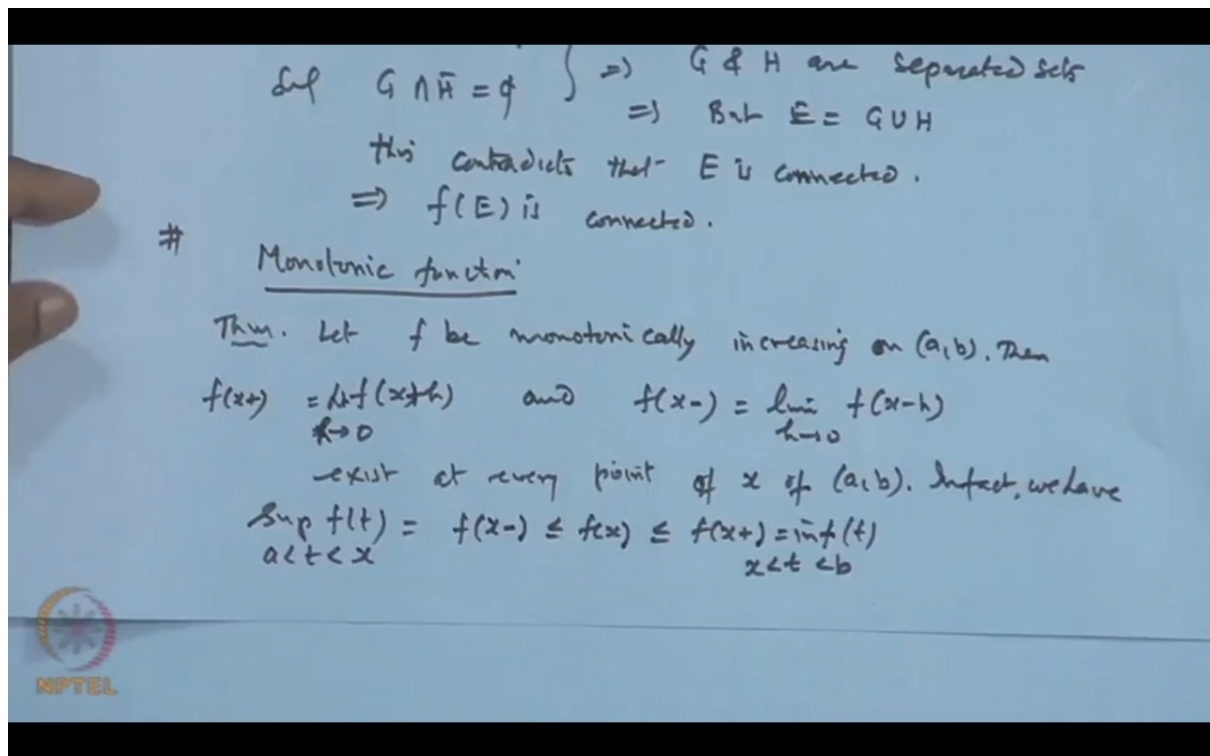 G ∩ H̄ = φ } ⇒ G & H are separated sets
⇒ But E = G ∪ H
this contradicts that E is connected.
⇒ f(E) is connected.
# Monotonic function
Thm. Let f be monotonically increasing on (a,b). Then
f(x+) = lt f(x+h) and f(x-) = lim f(x-h)
h→0 h→0
exist at every point of x of (a,b). Infact, we have
Sup f(t) = f(x-) ≤ f(x) ≤ f(x+) = inf (t)
a<t<x x<t<b
NPTEL